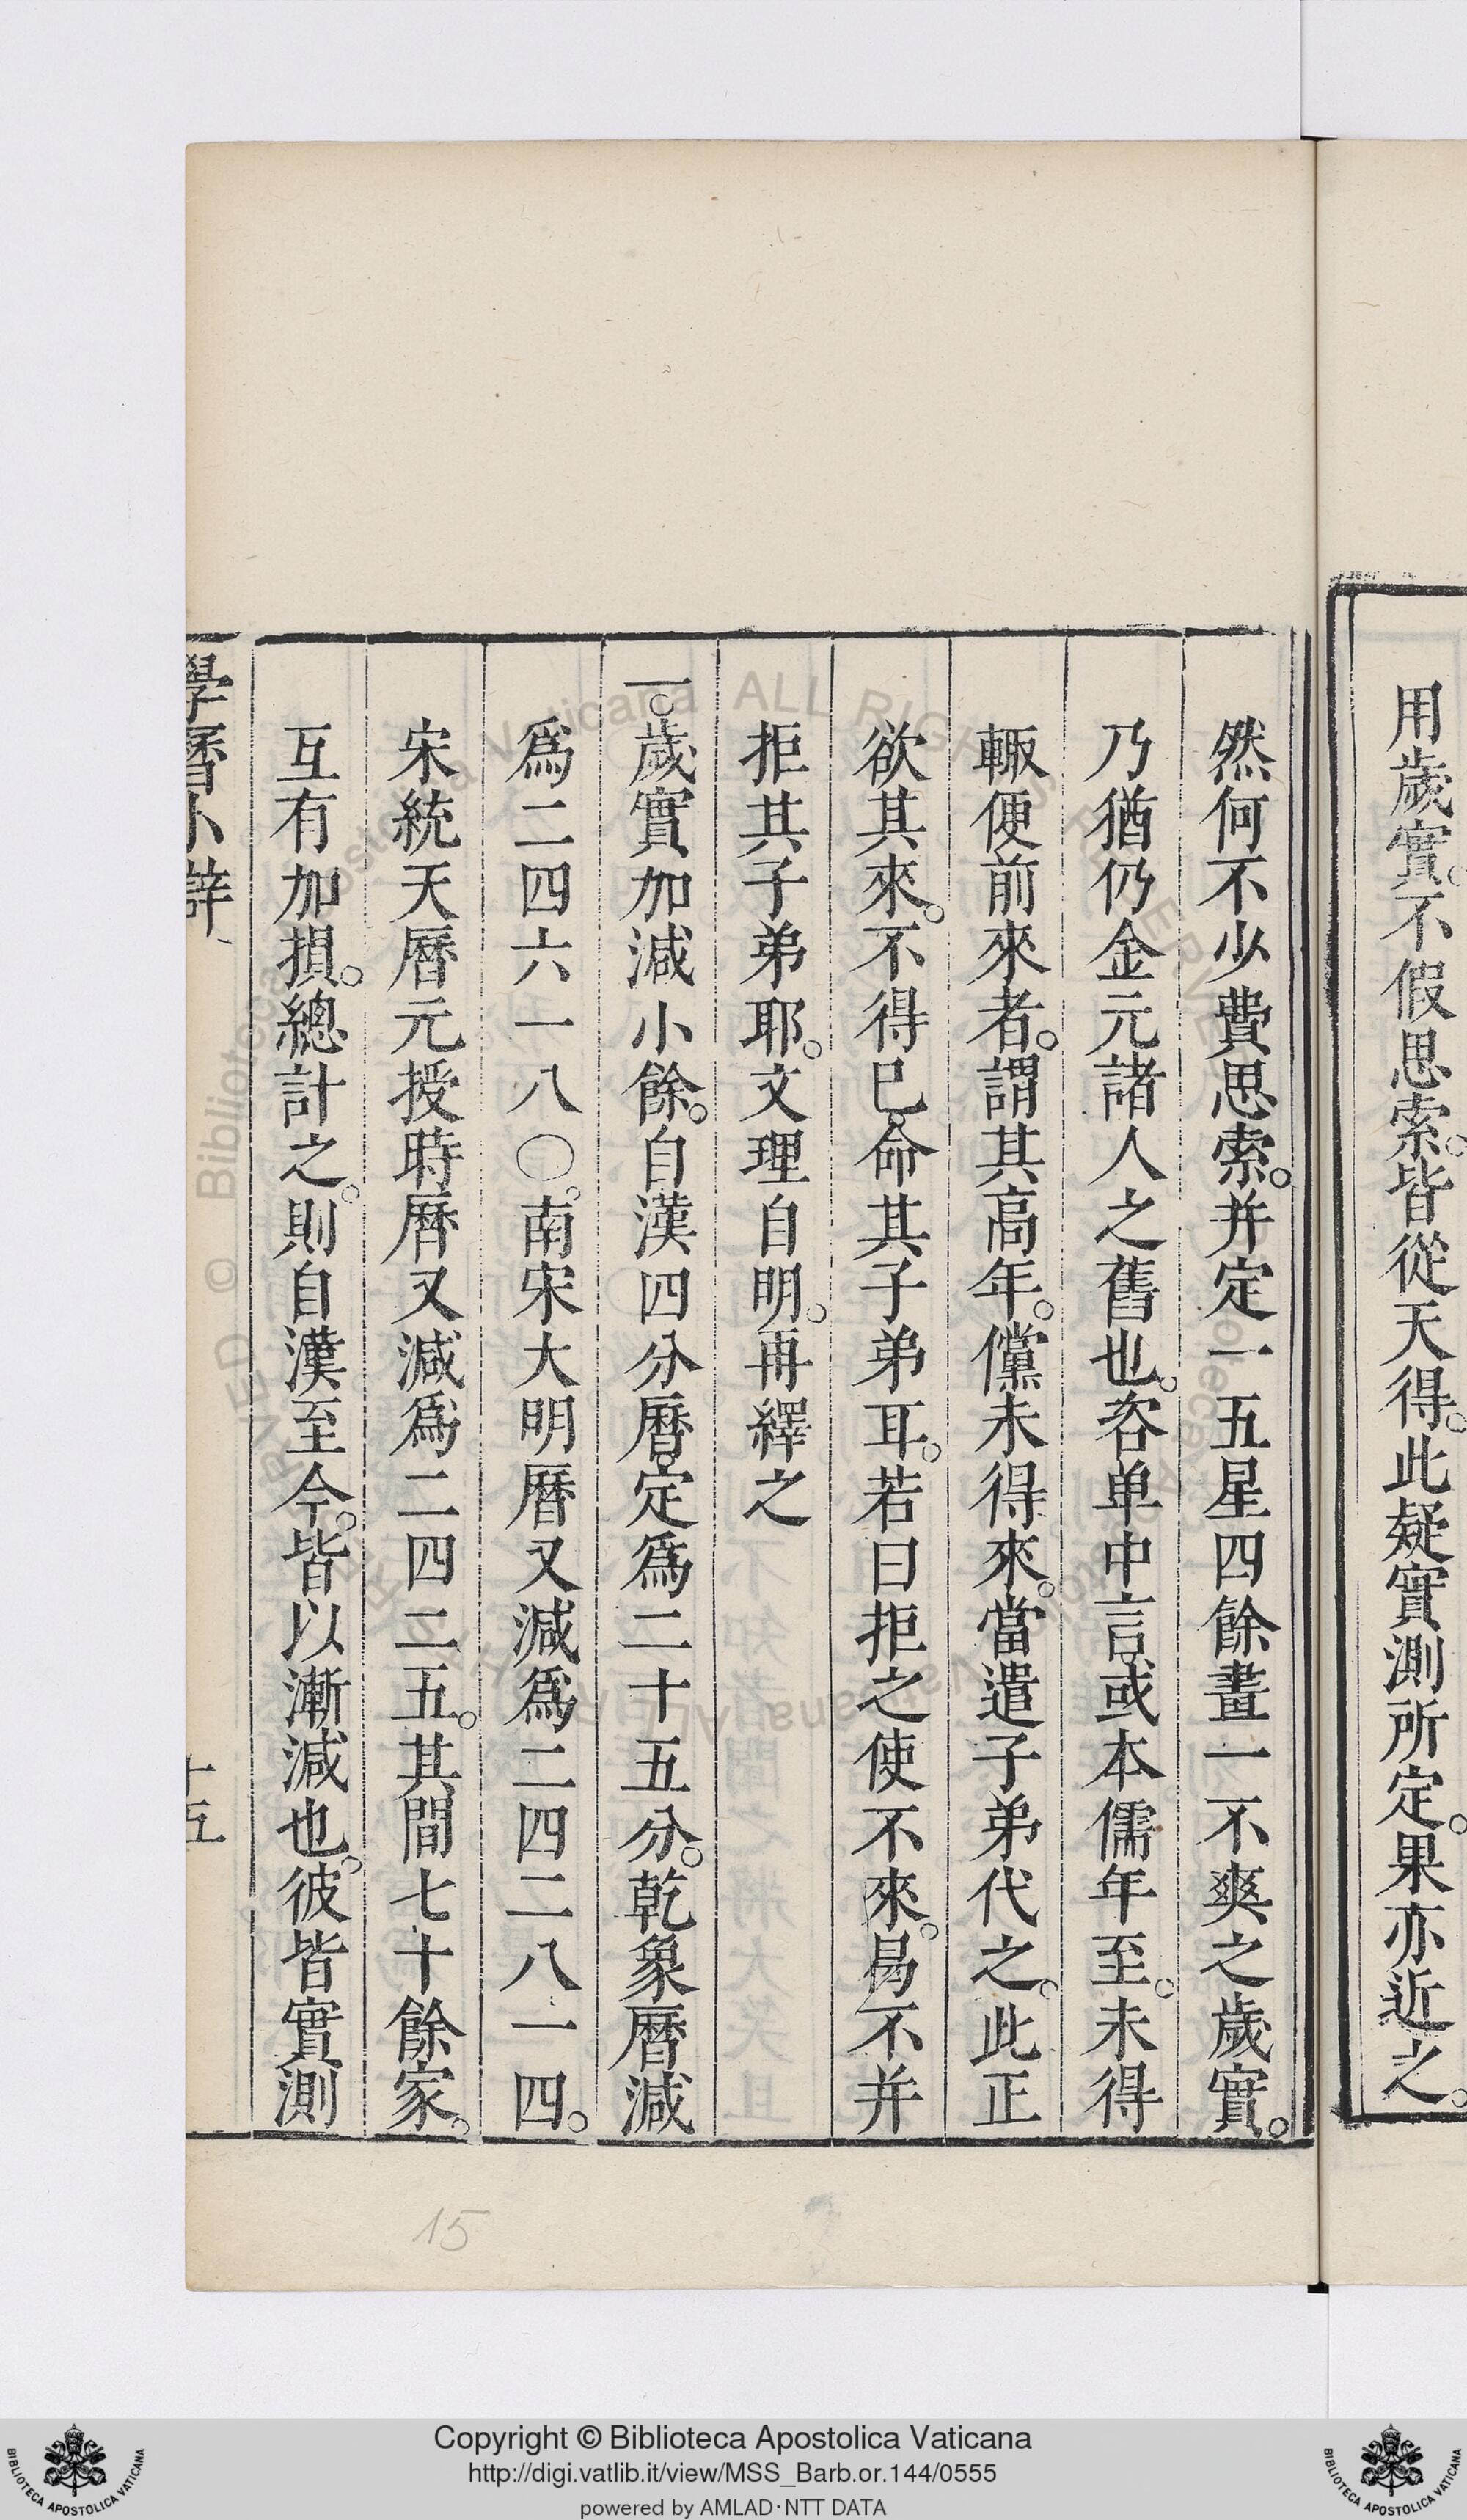 用歲實。不假思索。皆從天得。此疑實測所定。果亦近之。
然何不少費思索。并定一五星四餘畫一不爽之歲實。
乃猶仍金元諸人之舊也。咨单中言。或本儒年至。未得
輙便前來者。謂其高年。儻未得來。當遣子弟代之。此正
欲其來。不得已。命其子弟耳。若曰拒之使不來。曷不并
拒其子弟耶。文理自明。再繹之
一。歲實加減小餘。自漢四分曆。定爲二十五分。乾象曆減
爲二四六一八〇。南宋大明曆又減爲二四二八一四。
宋統天曆元授時曆又減爲二四二五。其間七十餘家。
互有加損。總計之。則自漢至今。皆以漸減也。彼皆實測
學曆小辯
十五
15
Copyright © Biblioteca Apostolica Vaticana
http://digi.vatlib.it/view/MSS_Barb.or.144/0555
powered by AMLAD·NTT DATA
BIBLIOTECA APOSTOLICA VATICANA
BIBLIOTECA APOSTOLICA VATICANA